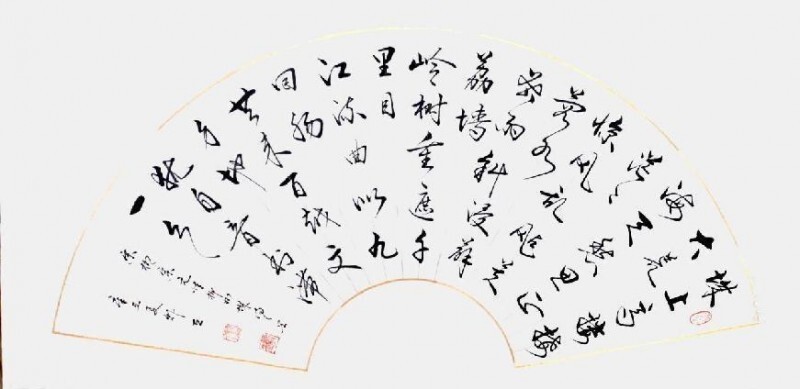 城上高樓接
大荒
海天愁思正
茫茫
惊风乱飐芙
蓉水
密雨斜侵薜
荔墙
岭树重遮千
里目
江流曲似九
回肠
共来百越文
身地
犹自音书滞
一乡